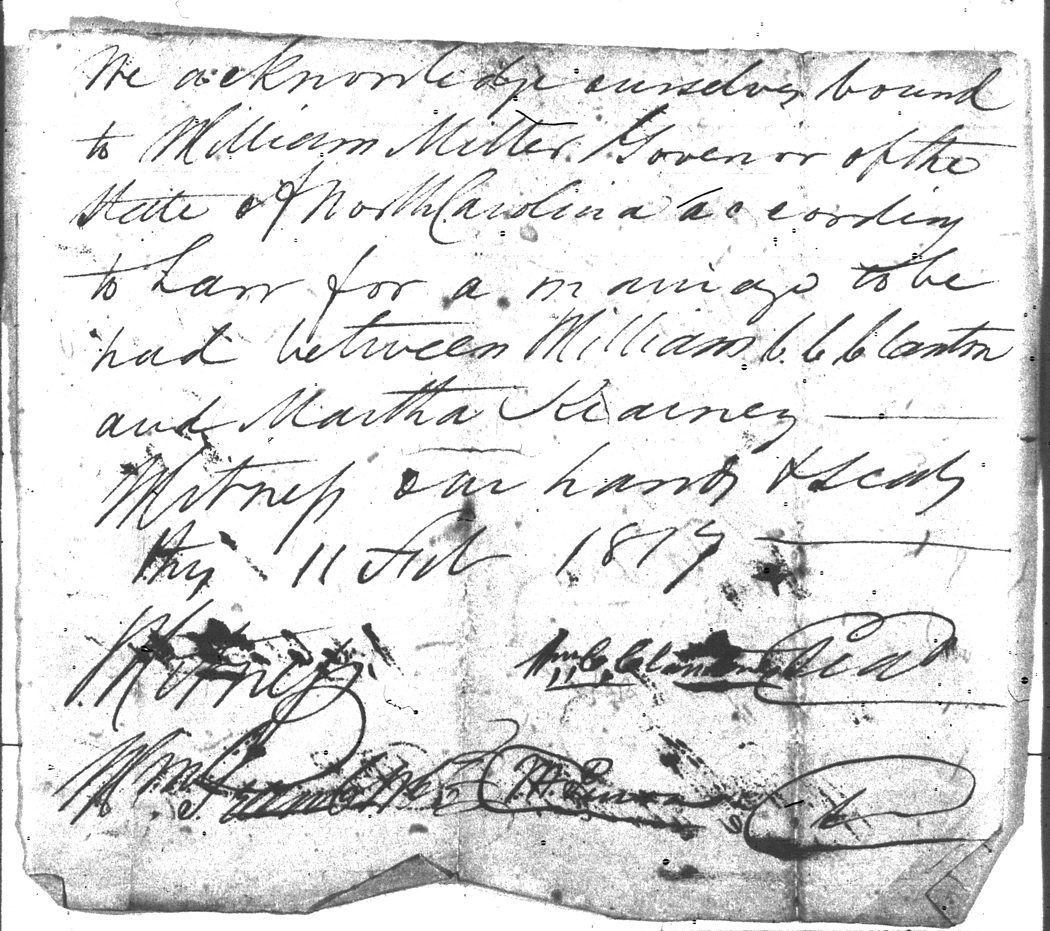 We acknowledge ourselves bound
to William Miller Govenor of the
State of North Carolina according
to Law for a marriage to be
had between William C. C. Clanton
and Martha Kearney
Witness our hands & seals
this 11 Feb 1817
Witness Wm C. C. Clanton Seal
Wm